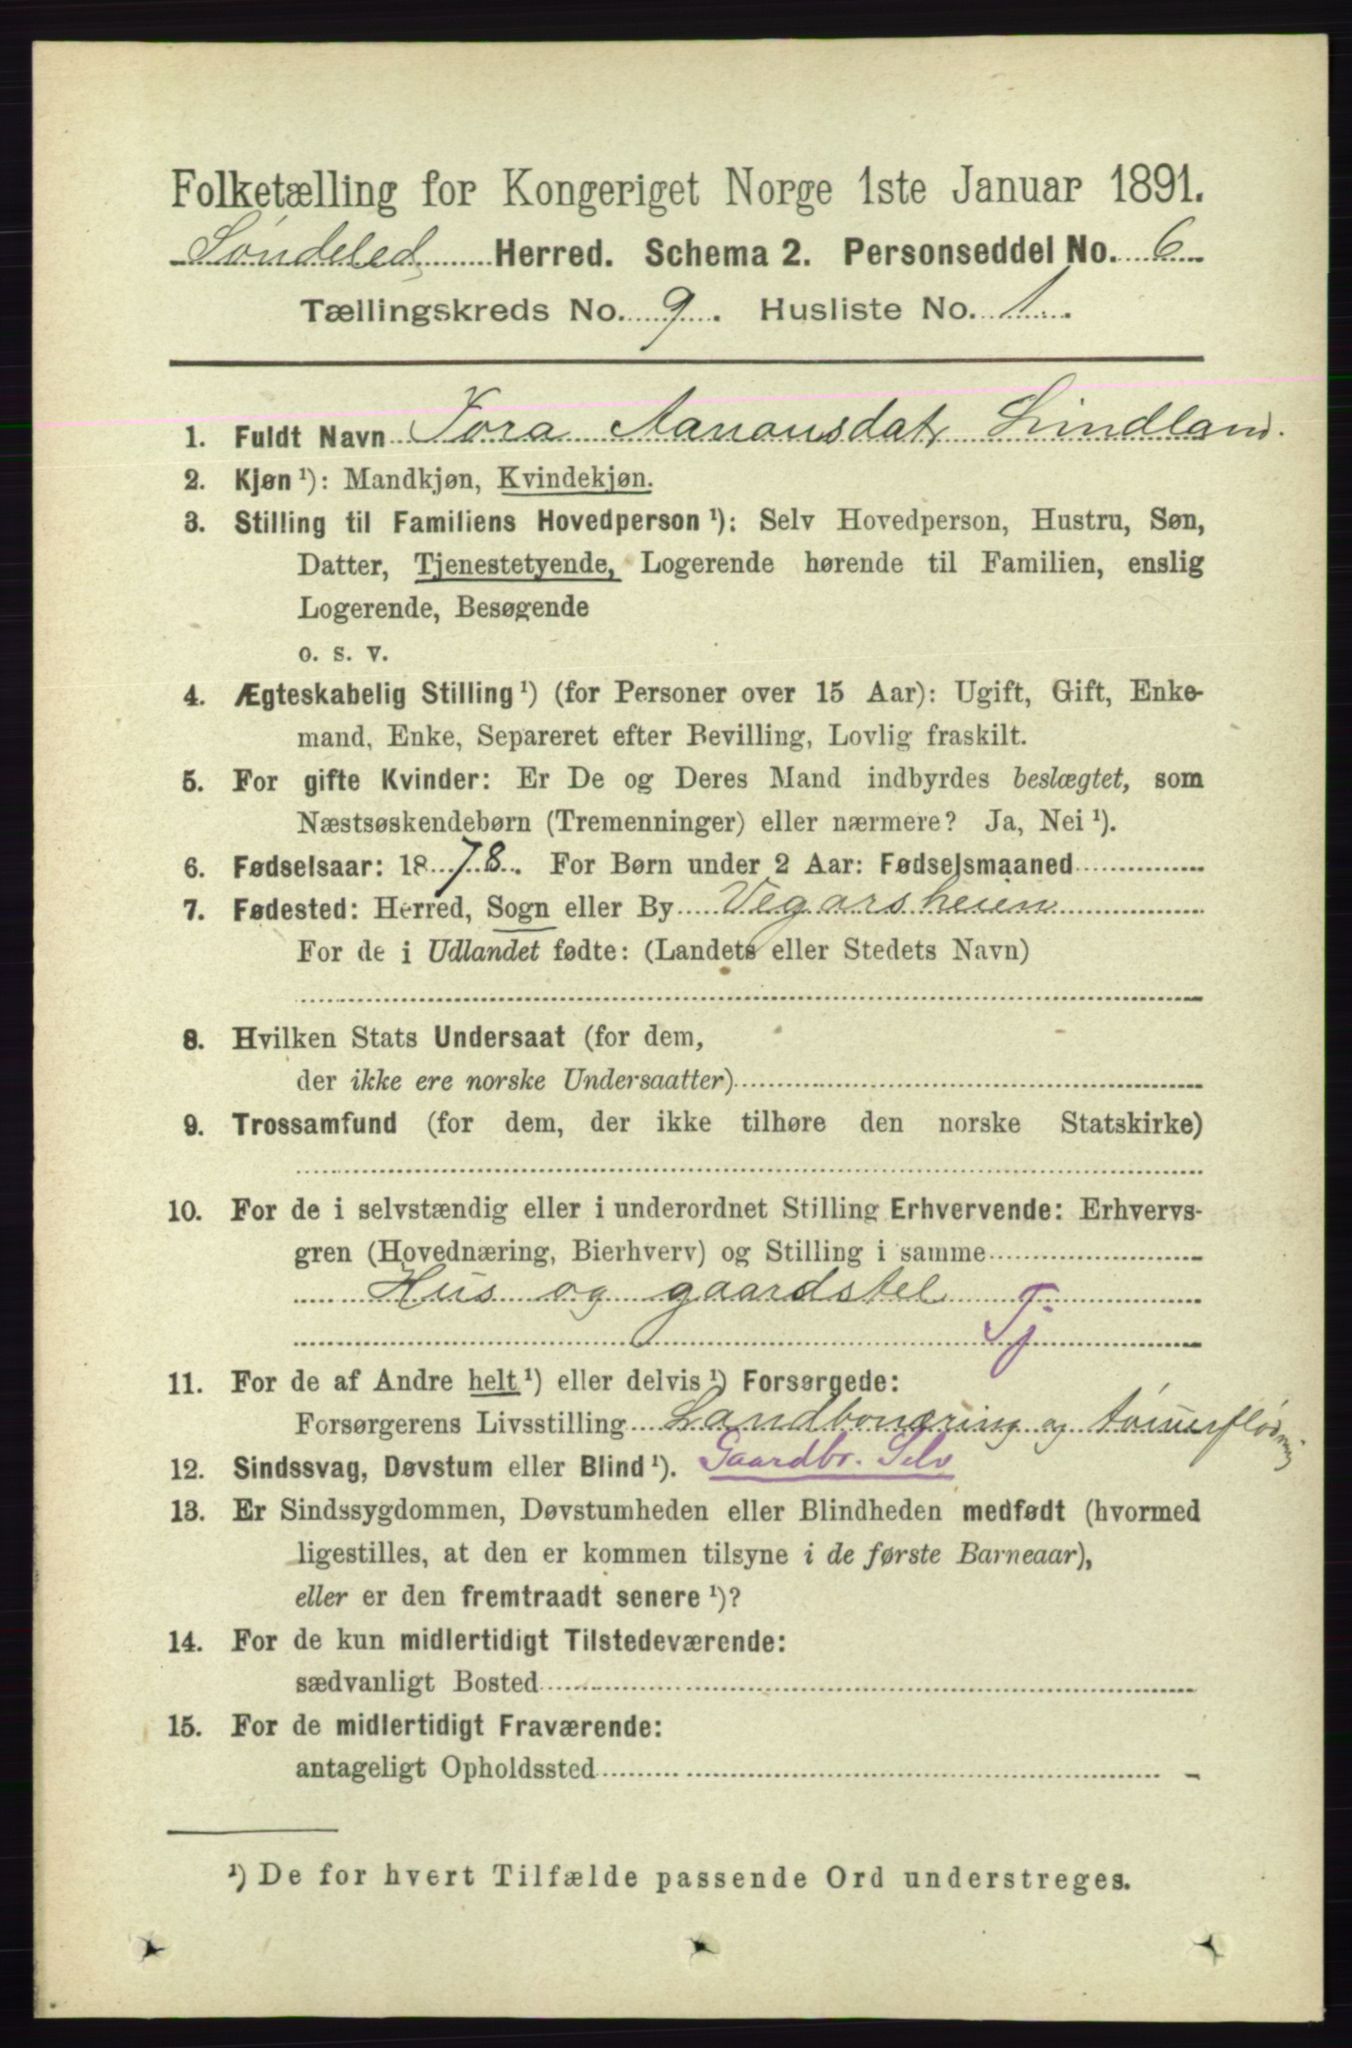 Folketælling for Kongeriget Norge 1ste Januar 1891.
Søndeled Herred. Schema 2. Personseddel No. 6
Tællingskreds No. 9. Husliste No. 1.
1. Fuldt Navn Tora Aanonsdat. Lindland.
2. Kjøn ¹): Mandkjøn, Kvindekjøn.
3. Stilling til Familiens Hovedperson ¹): Selv Hovedperson, Hustru, Søn,
Datter, Tjenestetyende, Logerende hørende til Familien, enslig
Logerende, Besøgende
o. s. v.
4. Ægteskabelig Stilling ¹) (for Personer over 15 Aar): Ugift, Gift, Enke-
mand, Enke, Separeret efter Bevilling, Lovlig fraskilt.
5. For gifte Kvinder: Er De og Deres Mand indbyrdes beslægtet, som
Næstsøskendebørn (Tremenninger) eller nærmere? Ja, Nei ¹).
6. Fødselsaar: 1878. For Børn under 2 Aar: Fødselsmaaned
7. Fødested: Herred, Sogn eller By Vegarsheien
For de i Udlandet fødte: (Landets eller Stedets Navn)
8. Hvilken Stats Undersaat (for dem,
der ikke ere norske Undersaatter)
9. Trossamfund (for dem, der ikke tilhøre den norske Statskirke)
10. For de i selvstændig eller i underordnet Stilling Erhvervende: Erhvervs-
gren (Hovednæring, Bierhverv) og Stilling i samme
Hus og gaardstel Tj
11. For de af Andre helt ¹) eller delvis ¹) Forsørgede:
Forsørgerens Livsstilling Landbonæring og tømmerflødning
12. Sindssvag, Døvstum eller Blind ¹). Gaardbr. Selv
13. Er Sindssygdommen, Døvstumheden eller Blindheden medfødt (hvormed
ligestilles, at den er kommen tilsyne i de første Barneaar),
eller er den fremtraadt senere ¹)?
14. For de kun midlertidigt Tilstedeværende:
sædvanligt Bosted
15. For de midlertidigt Fraværende:
antageligt Opholdssted
¹) De for hvert Tilfælde passende Ord understreges.